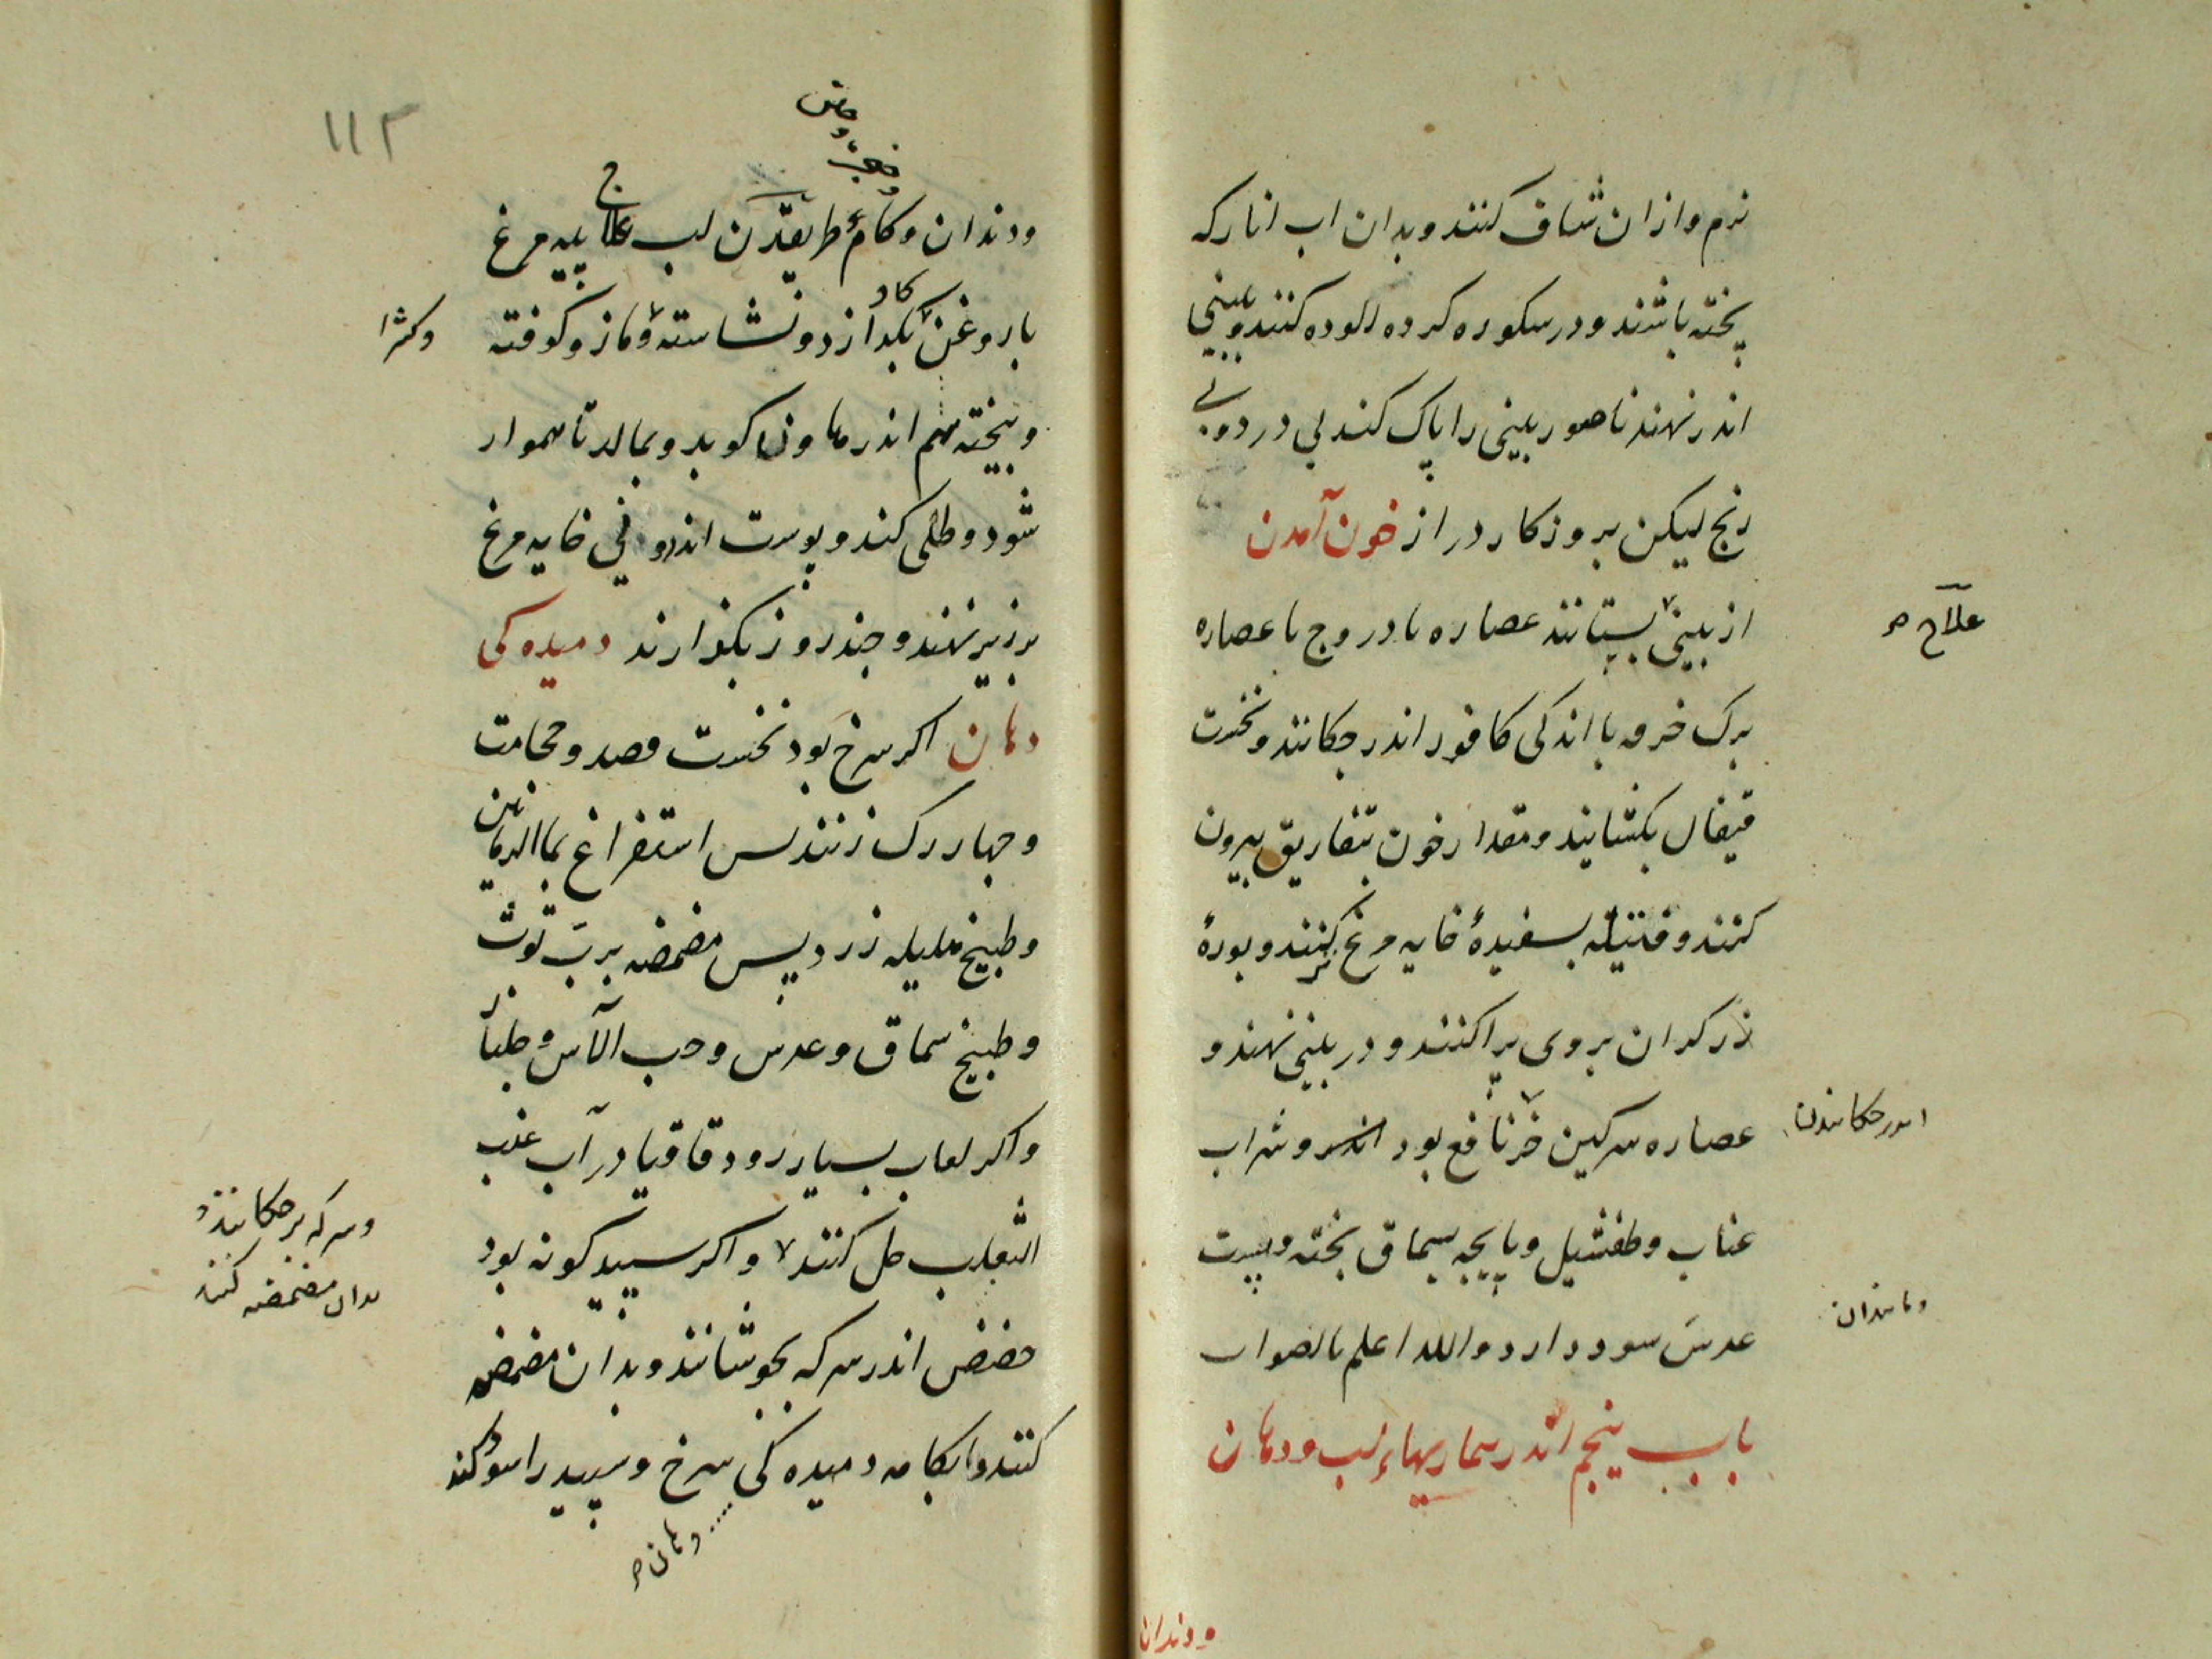 نرم وازان شاف کنند وبدان اب انار که
پخته باشند ودر سکوره کرده الوده کنند وبینی
اندر نهند ناصور بینی را پاک کند بی درد وبی
رنج لیکن بروزکار دراز خون آمدن
از بینی بستانند عصاره بادروج با عصاره
علاج
برک خرفه با اندکی کافور اندر جکانند ونخست
قیفال بکشایند ومقدار خون بتفاریق بیرون
کنند وفتیله بسفیدۀ خایه مرغ کنند وبورۀ
زرکران بروی پراکنند ودر بینی نهند و
عصاره سرکین خر نافع بود وشراب
اندر جکانیدن
عناب وطفشیل وپایچه بسماق پخته وپست
عدس سود دارد والله اعلم بالصواب
ومانندان
باب پنجم اندر بیماریهاء لب ودهان
ودندان
۱۱۳
ودندان وکام طریقیدن لب علاج پیه مرغ
باروغن کاو بکدازد ونشاسته ومازو کوفته
وکثیرا
وبیخته بهم اندر هاون کوبد وبمالد تا هموار
شود وطلی کند وپوست اندرونی خایه مرغ
بر زبر نهند وجند روز بکذارند دمیدکی
دهان اکر سرخ بود نخست فصد وحجامت
وجهار رک زنند پس استفراغ بماالرمانین
وطبیخ هلیله زرد پس مضمضه برب توث
وطبیخ سماق وعدس وحب الآس وجلنار
واکر لعاب بسیار رود قاقیا در آب عنب
الثعلب حل کنند واکر سپید کونه بود
وسرکه بر جکانند و
بدان مضمضه کنند
حضض اندر سرکه بجوشانند وبدان مضمضه
کنند وابکامه دمیدکی سرخ وسپید را سود کند
دهان